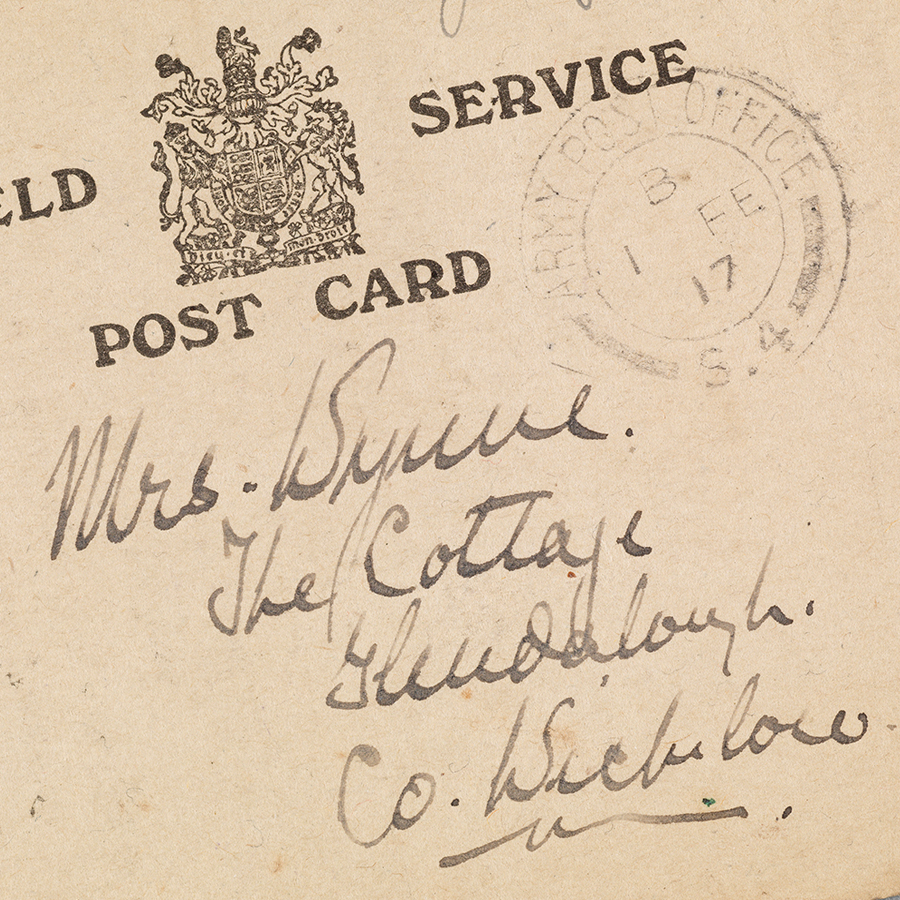 ELD SERVICE
Dieu et mon Droit
POST CARD
ARMY POST OFFICE
B
1 FE
17
S.4
Mrs. Wynne.
The Cottage
Glendalough.
Co. Wicklow.